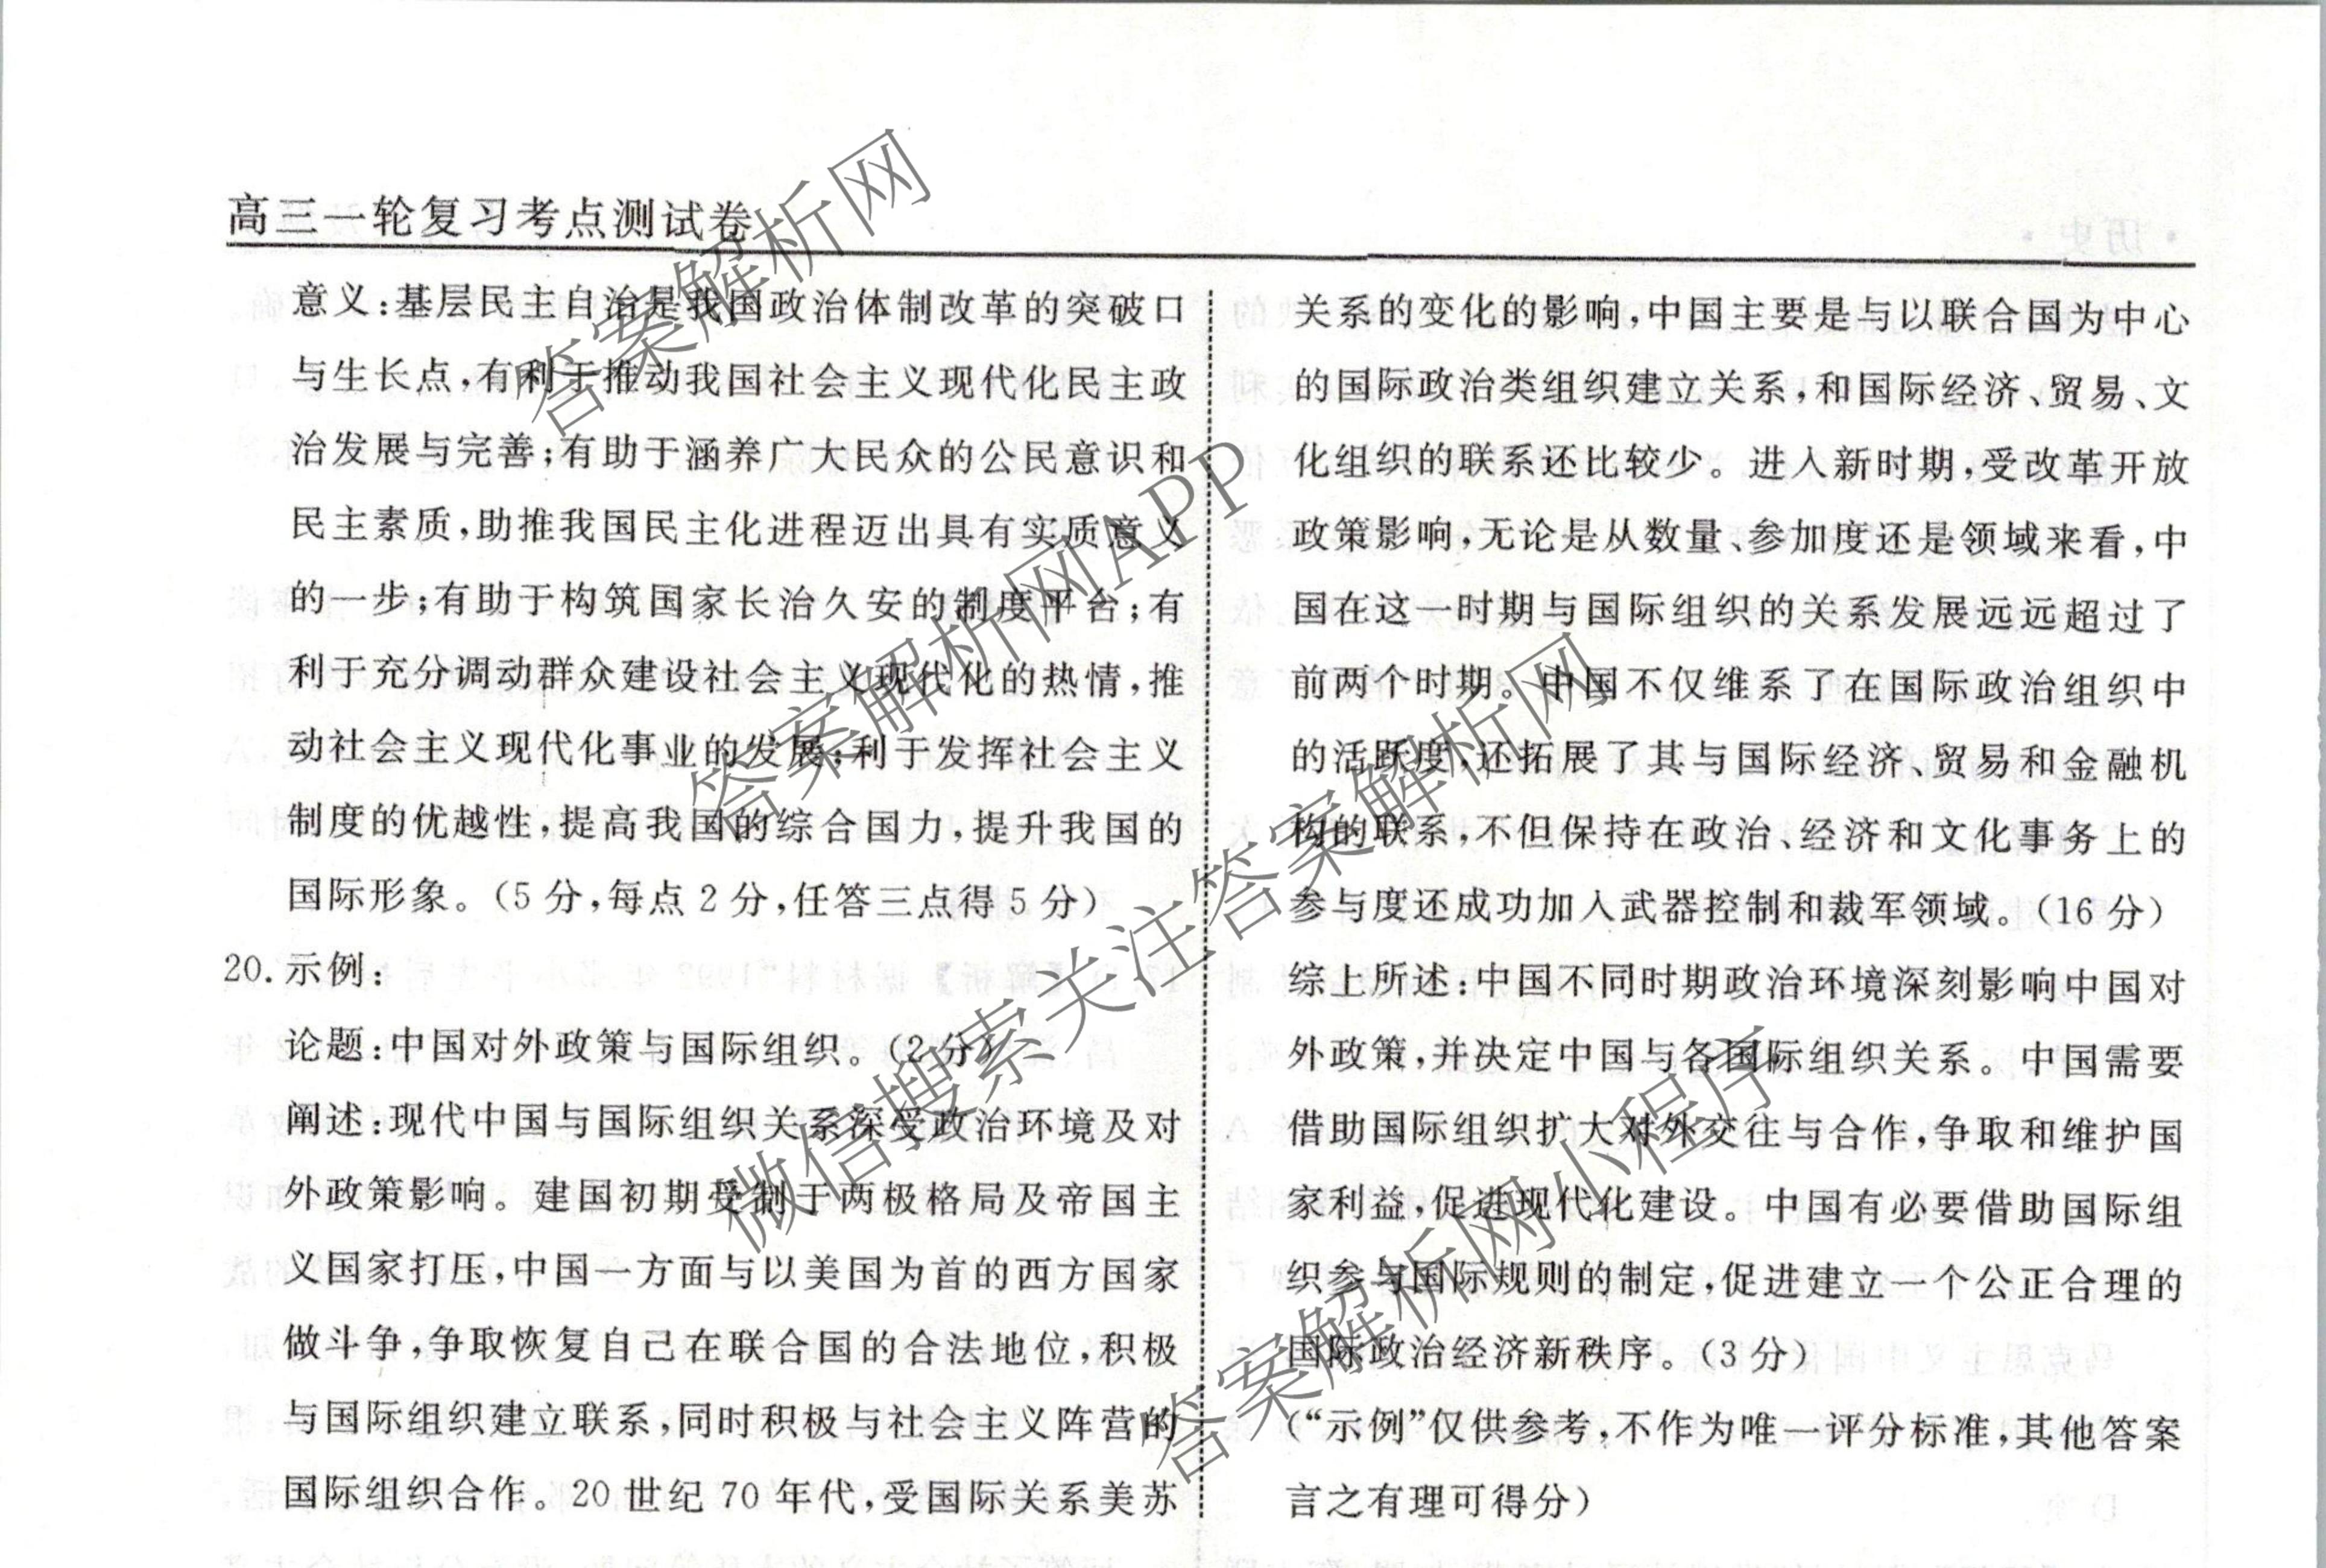 高三一轮复习考点测试卷
意义:基层民主自治是我国政治体制改革的突破口
与生长点,有利于推动我国社会主义现代化民主政
治发展与完善;有助于涵养广大民众的公民意识和
民主素质,助推我国民主化进程迈出具有实质意义
的一步;有助于构筑国家长治久安的制度平台;有
利于充分调动群众建设社会主义现代化的热情,推
动社会主义现代化事业的发展;利于发挥社会主义
制度的优越性,提高我国的综合国力,提升我国的
国际形象。(5分,每点2分,任答三点得5分)
20.示例:
论题:中国对外政策与国际组织。(2分)
阐述:现代中国与国际组织关系深受政治环境及对
外政策影响。建国初期受制于两极格局及帝国主
义国家打压,中国一方面与以美国为首的西方国家
做斗争,争取恢复自己在联合国的合法地位,积极
与国际组织建立联系,同时积极与社会主义阵营的
国际组织合作。20世纪70年代,受国际关系美苏
关系的变化的影响,中国主要是与以联合国为中心
的国际政治类组织建立关系,和国际经济、贸易、文
化组织的联系还比较少。进入新时期,受改革开放
政策影响,无论是从数量、参加度还是领域来看,中
国在这一时期与国际组织的关系发展远远超过了
前两个时期。中国不仅维系了在国际政治组织中
的活跃度,还拓展了其与国际经济、贸易和金融机
构的联系,不但保持在政治、经济和文化事务上的
参与度还成功加入武器控制和裁军领域。(16分)
综上所述:中国不同时期政治环境深刻影响中国对
外政策,并决定中国与各国际组织关系。中国需要
借助国际组织扩大对外交往与合作,争取和维护国
家利益,促进现代化建设。中国有必要借助国际组
织参与国际规则的制定,促进建立一个公正合理的
国际政治经济新秩序。(3分)
(“示例”仅供参考,不作为唯一评分标准,其他答案
言之有理可得分)
答案解析网
答案解析网APP
微信搜索关注答案解析网
答案解析网小程序